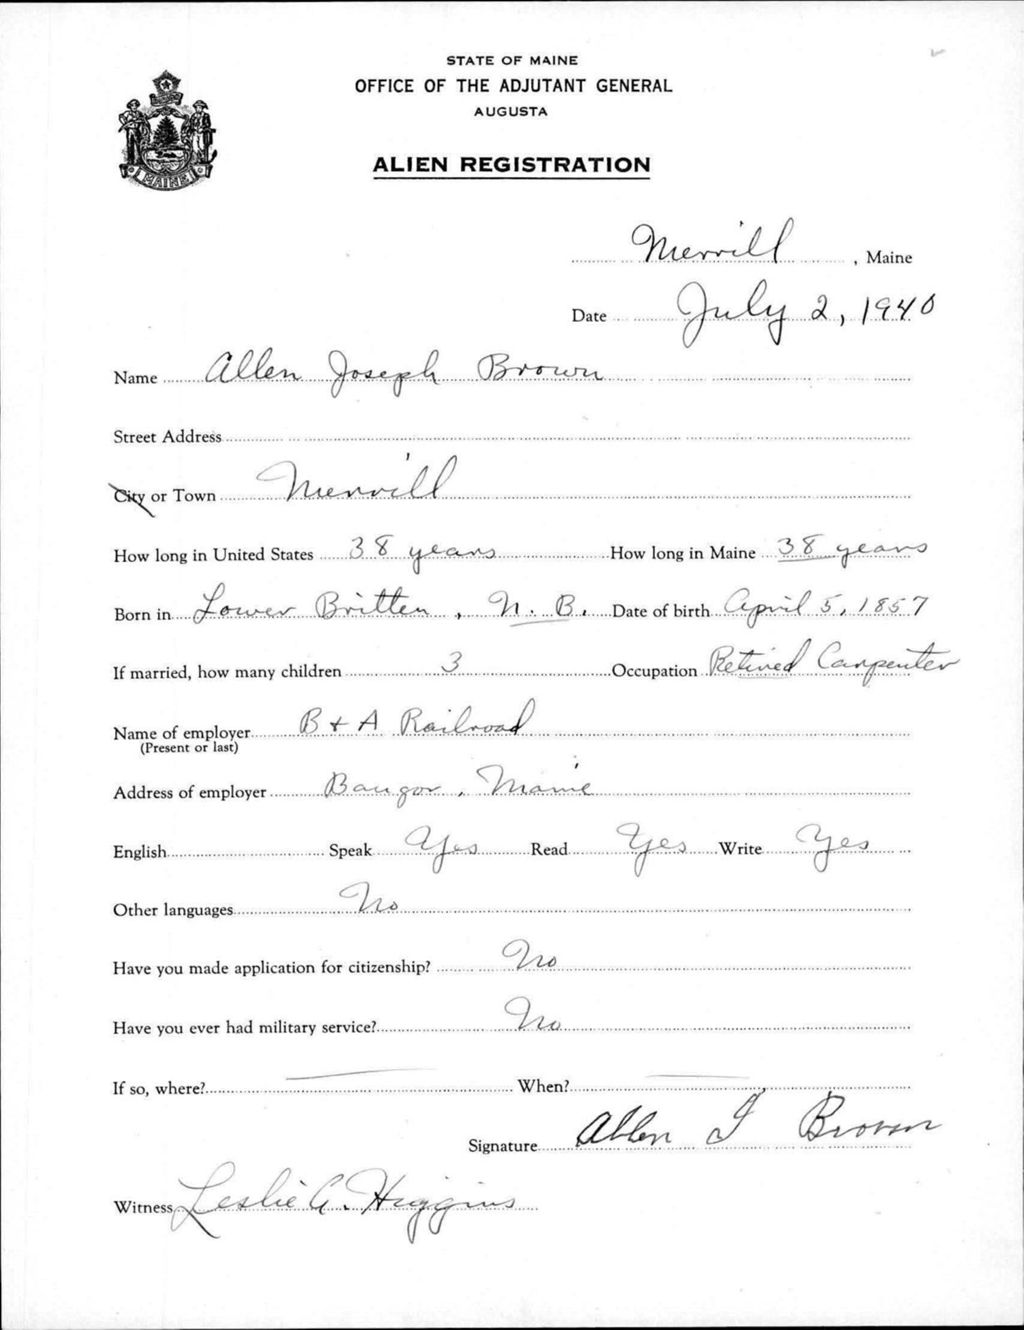 STATE OF MAINE
OFFICE OF THE ADJUTANT GENERAL
AUGUSTA
ALIEN REGISTRATION
MAINE
Merrill, Maine
Date July 2, 1940
Name Allen Joseph Brown
Street Address
City or Town Merrill
How long in United States 38 years How long in Maine 38 years
Born in Lower Britten, N. B. Date of birth April 5, 1857
If married, how many children 3 Occupation Retired Carpenter
Name of employer B & A Railroad
(Present or last)
Address of employer Bangor, Maine
English Speak Yes Read Yes Write Yes
Other languages No
Have you made application for citizenship? No
Have you ever had military service? No
If so, where? When?
Signature Allen J Brown
Witness Leslie A. Higgins